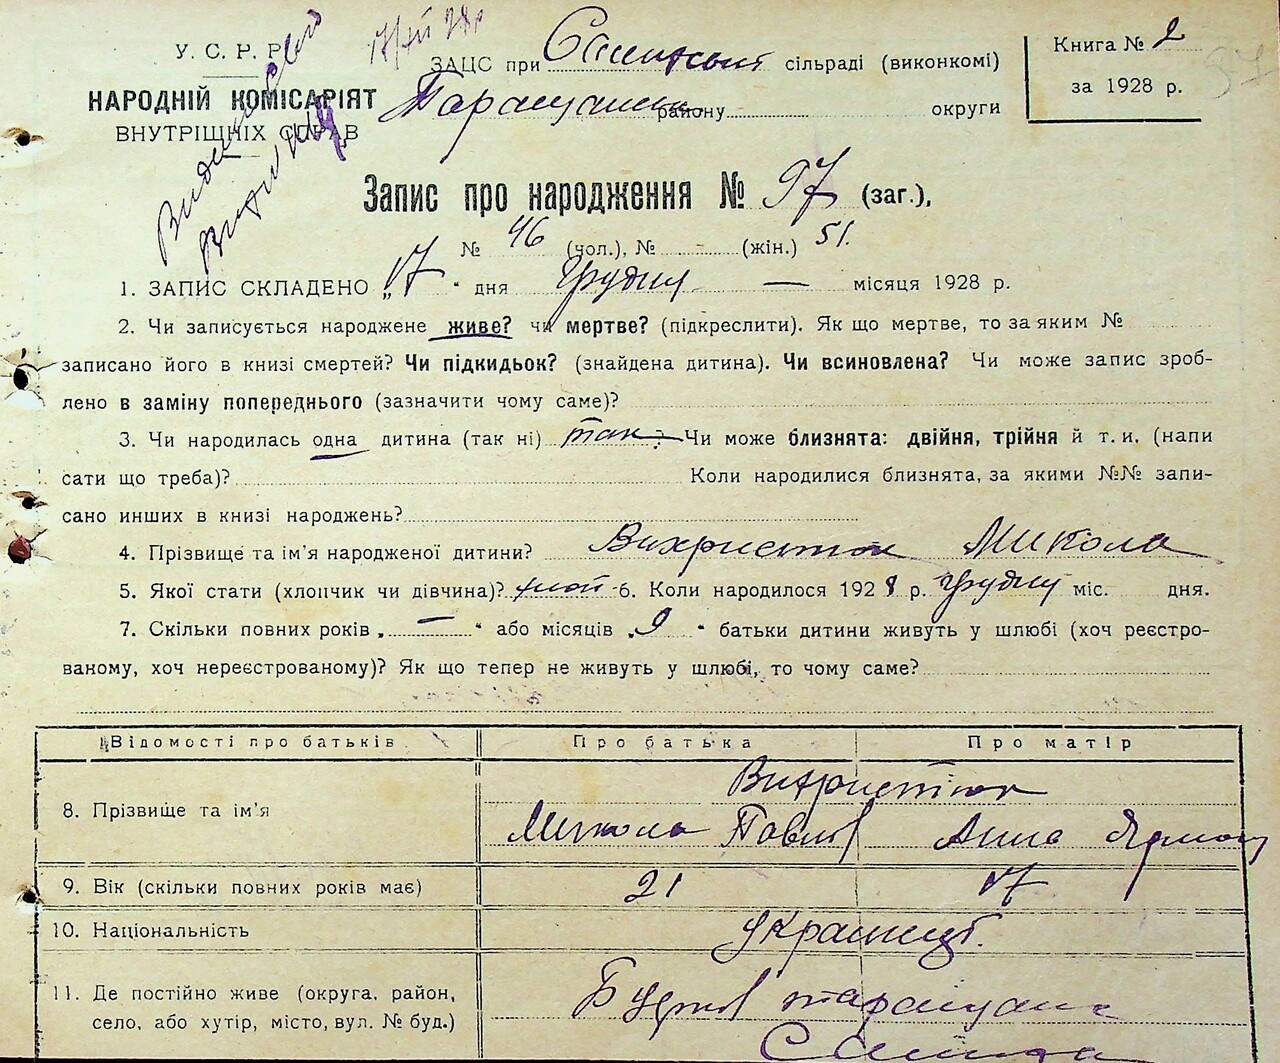 У. С. Р. Р.
НАРОДНІЙ КОМІСАРІЯТ
ВНУТРІЩНІХ СПРАВ
17/XII 28р
ЗАЦС при сільраді (виконкомі)
Таращанськ району округи
Книга № 2
за 1928 р.
97
Запис про народження № 97 (заг.),
№ 46 (чол.), № (жін.) 51.
1. ЗАПИС СКЛАДЕНО „17" дня Грудня — місяця 1928 р.
2. Чи записується народжене живе? чи мертве? (підкреслити). Як що мертве, то за яким №
записано його в книзі смертей? Чи підкидьок? (знайдена дитина). Чи всиновлена? Чи може запис зроб-
лено в заміну попереднього (зазначити чому саме)?
3. Чи народилась одна дитина (так ні) так. Чи може близнята: двійня, трійня й т. и. (напи
сати що треба)? Коли народилися близнята, за якими №№ запи-
сано инших в книзі народжень?
4. Прізвище та ім'я народженої дитини? Вихристюк Микола
5. Якої стати (хлопчик чи дівчина)? 6. Коли народилося 1928 р. Грудня міс. дня.
7. Скільки повних років „—" або місяців „9" батьки дитини живуть у шлюбі (хоч реєстро-
ваному, хоч нереєстрованому)? Як що тепер не живуть у шлюбі, то чому саме?
Відомості про батьків Про батька Про матір
Вихристюк
8. Прізвище та ім'я Микола Павлов Анна
9. Вік (скільки повних років має) 21 17
10. Національність Українці.
11. Де постійно живе (округа, район,
село, або хутір, місто, вул. № буд.)